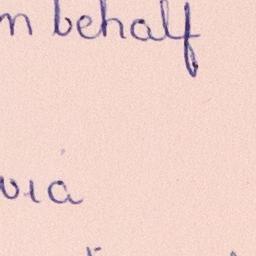 n behalf
via